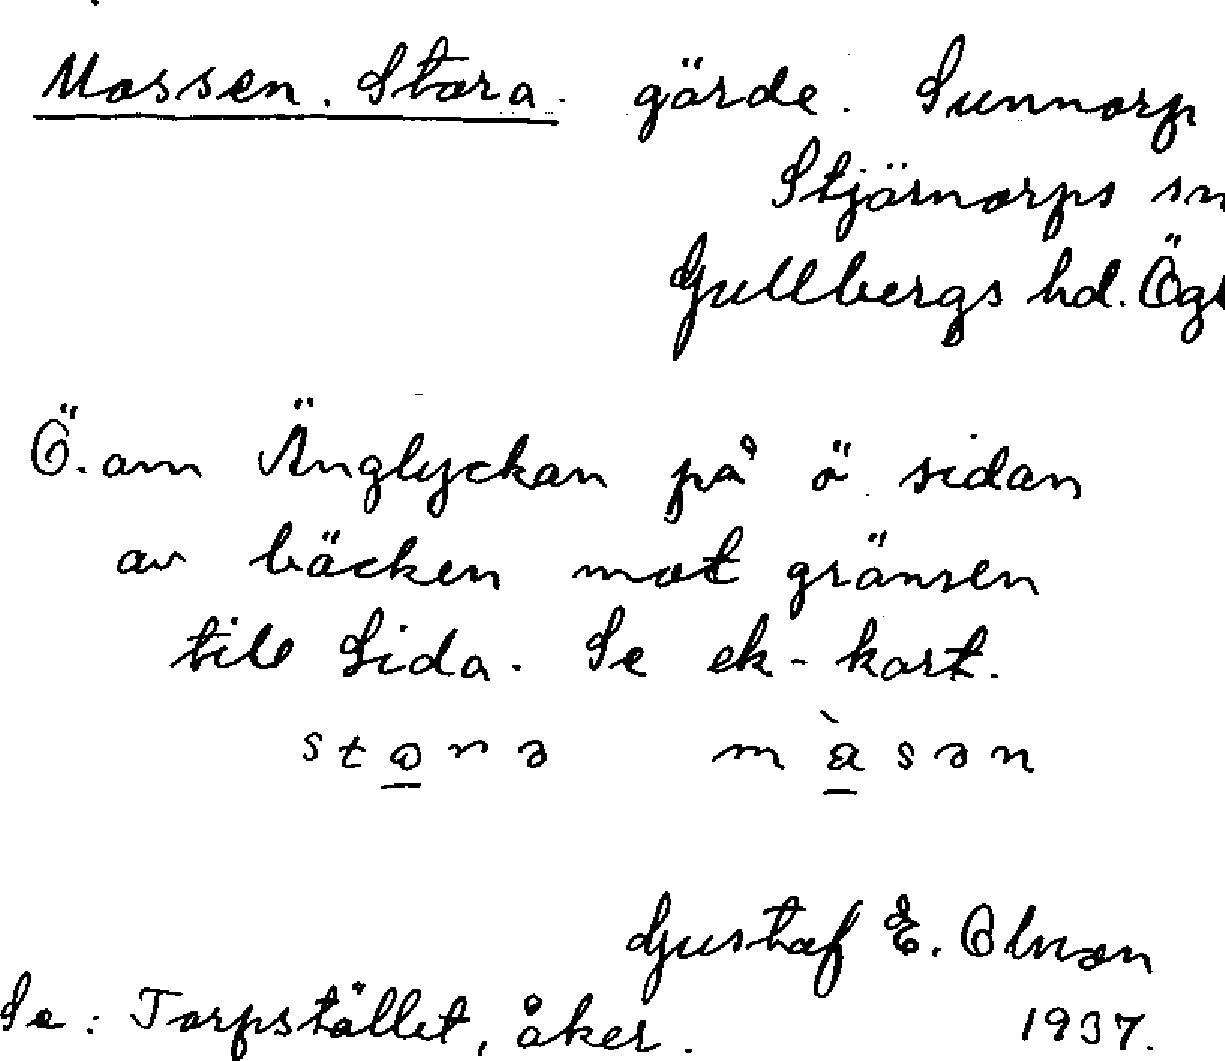 Mossen. Stora. gärde. Sunnorp
Stjärnorps sn
Gullbergs hd. Ögl
Ö. om Änglyckan på ö. sidan
av bäcken mot gränsen
till Lida. Se ek-kart.
stora måsən
Gustaf E. Olson
Se: Torpstället, åker. 1937.